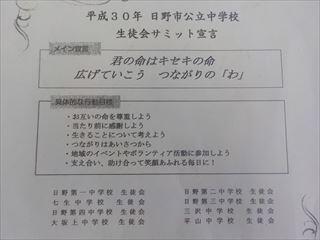 平成３０年 日野市公立中学校
生徒会サミット宣言
メイン宣言
君の命はキセキの命
広げていこう つながりの「わ」
具体的な行動目標
・お互いの命を尊重しよう
・当たり前に感謝しよう
・生きることについて考えよう
・つながりはあいさつから
・地域のイベントやボランティア活動に参加しよう
・支え合い、助け合って笑顔あふれる毎日に！
日野第一中学校 生徒会 日野第二中学校 生徒会
七生中学校 生徒会 日野第三中学校 生徒会
日野第四中学校 生徒会 三沢中学校 生徒会
大坂上中学校 生徒会 平山中学校 生徒会